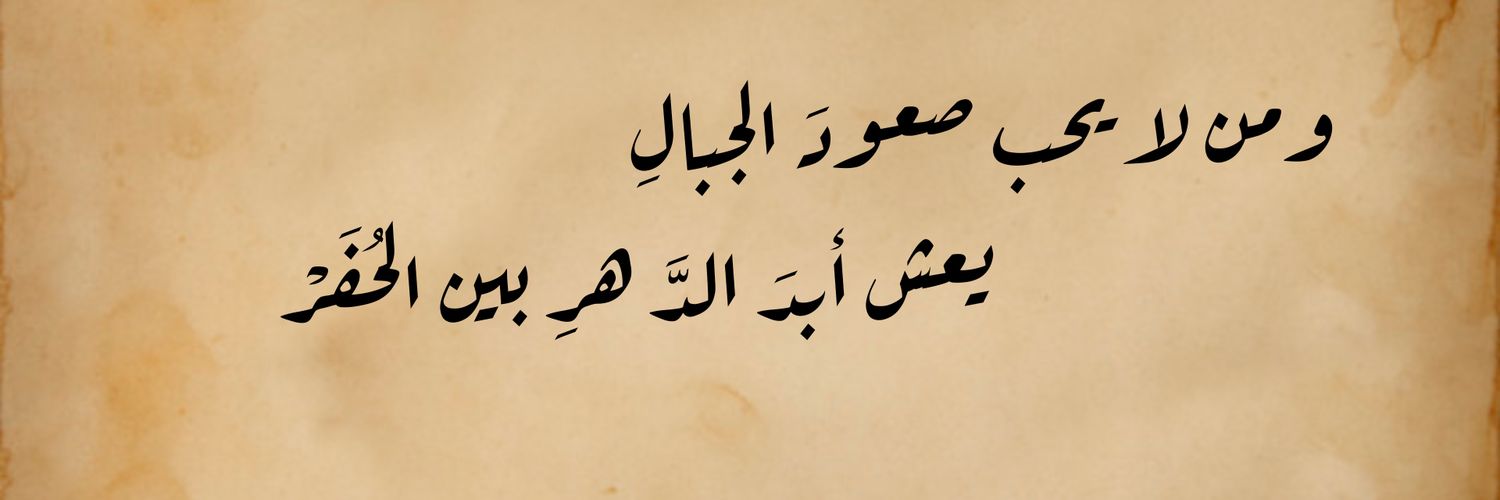 و من لا يحب صعودَ الجبالِ
يعش أبدَ الدَّهرِ بين الحُفَرْ